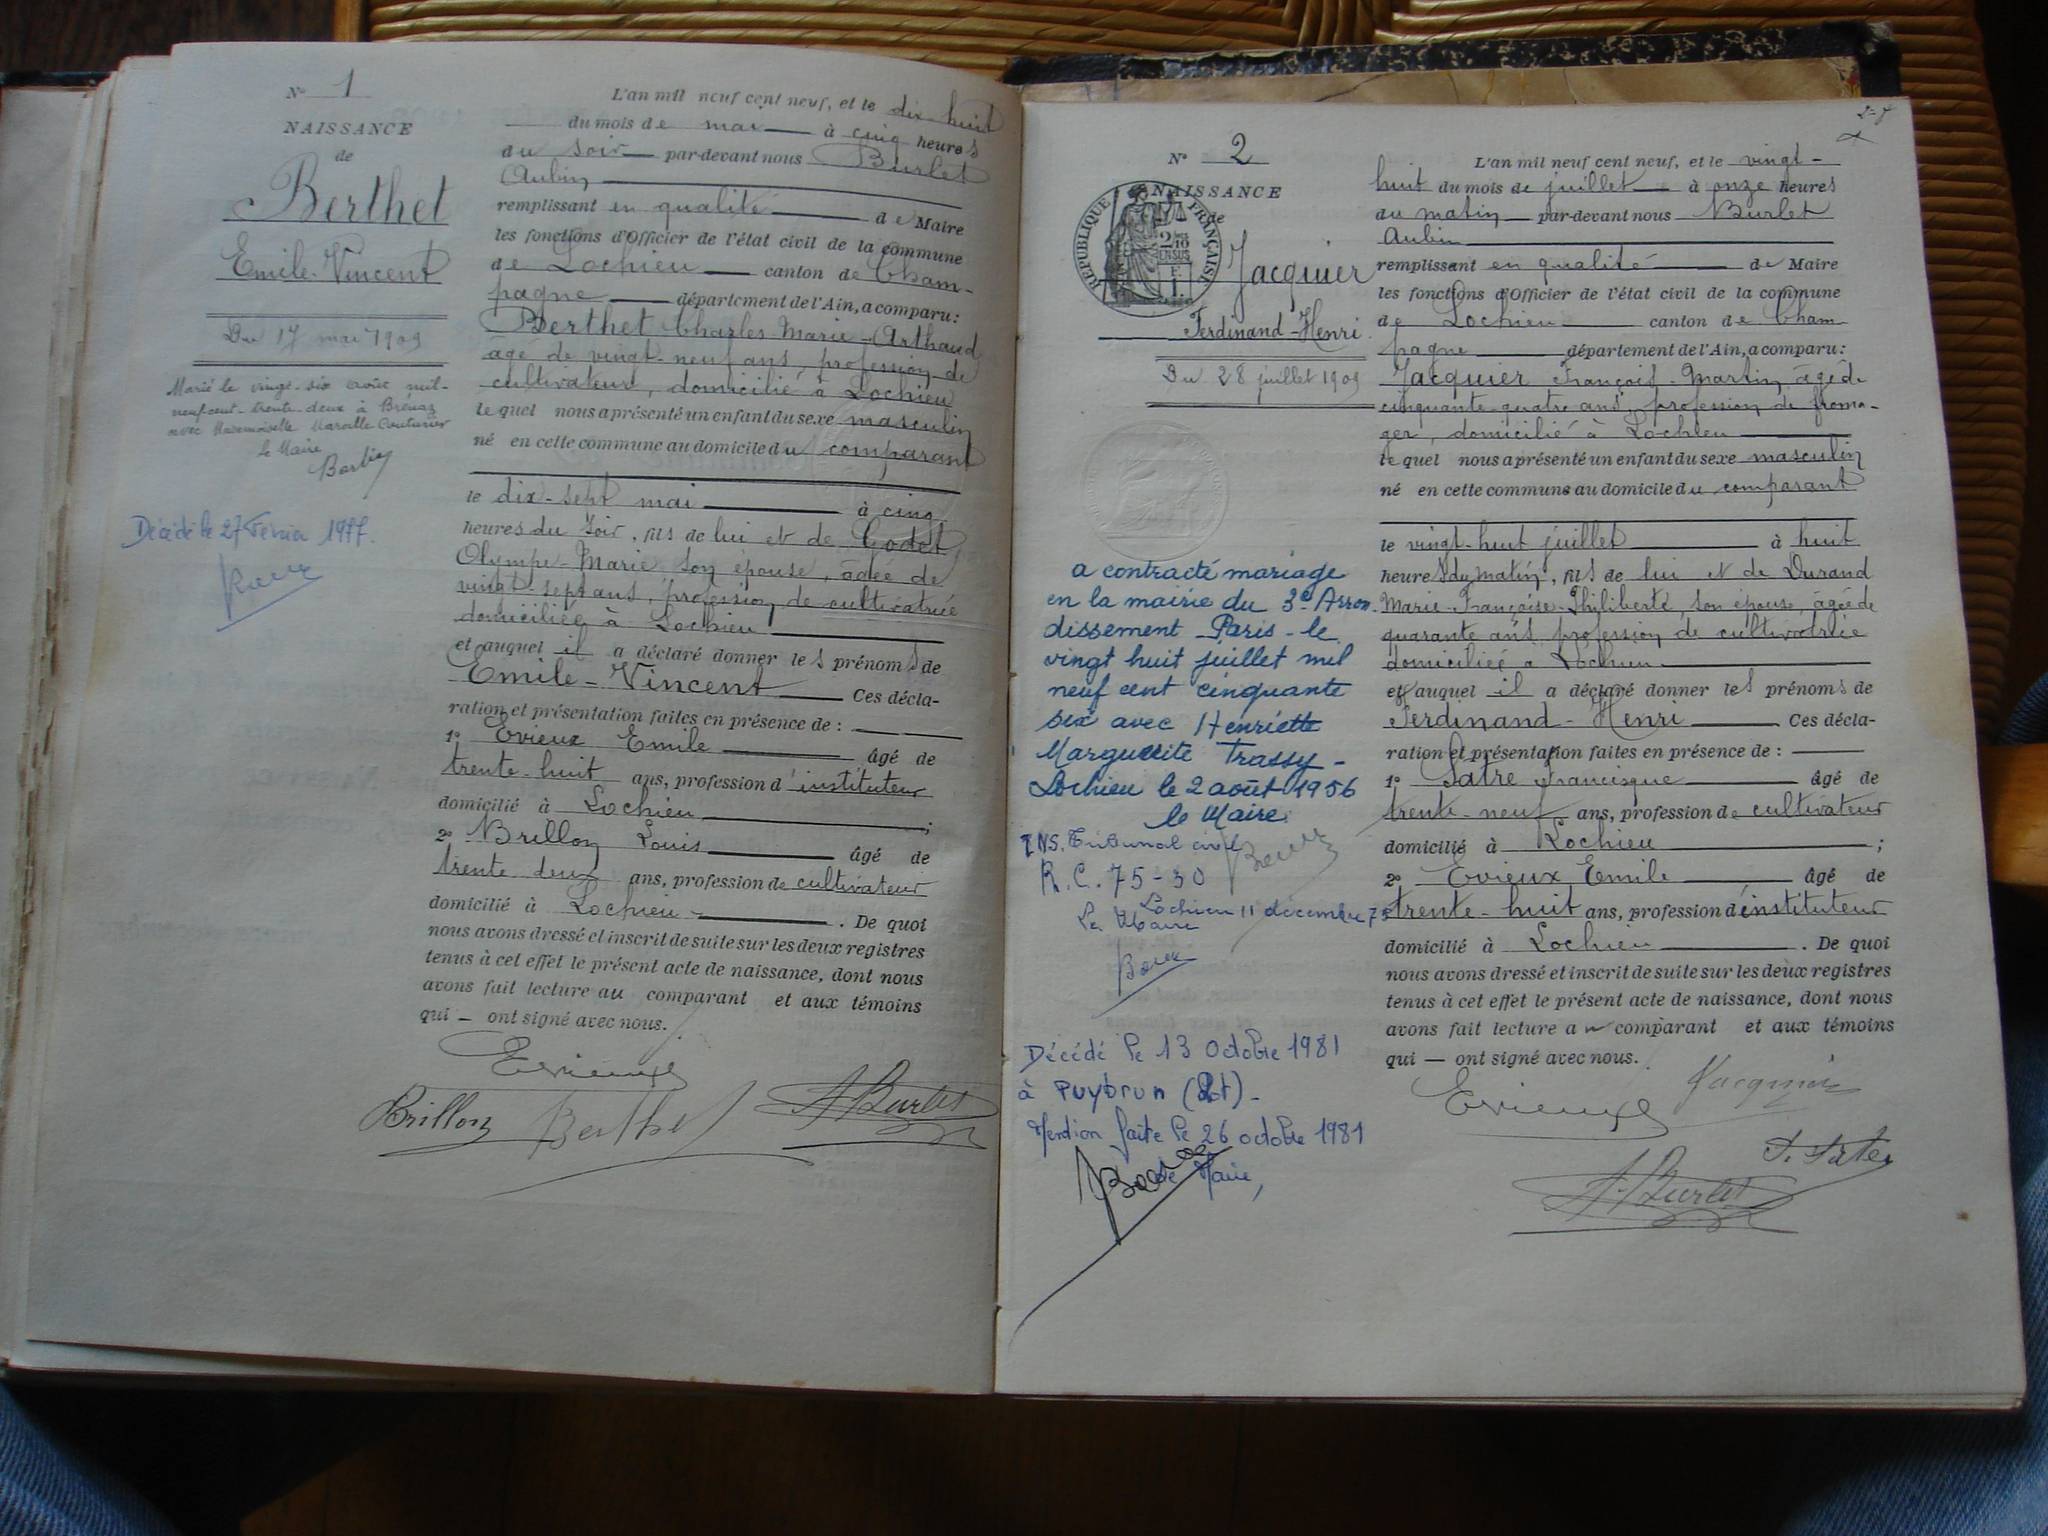 N° 1
NAISSANCE
de
Berthet
Emile-Vincent
Du 17 mai 1909
Marié le vingt-six août mil-
neuf-cent-trente-deux à Brénaz
avec Mademoiselle Marcelle Couturier
le Maire
Décédé le 27 Février 1977.
L'an mil neuf cent neuf, et le dix-huit
du mois de mai à cinq heures
du soir par-devant nous Burlet
Aubin
remplissant en qualité de Maire
les fonctions d'Officier de l'état civil de la commune
de Lochieu canton de Cham-
pagne département de l'Ain, a comparu:
Berthet Charles-Marie-Arthaud
âgé de vingt-neuf ans, profession de
cultivateur, domicilié à Lochieu
le quel nous a présenté un enfant du sexe masculin
né en cette commune au domicile du comparant
le dix-sept mai à cinq
heures du soir, fils de lui et de Godet
Olympe-Marie son épouse, âgée de
vingt-sept ans, profession de cultivatrice
domiciliée à Lochieu
et auquel il a déclaré donner les prénoms de
Emile-Vincent Ces décla-
ration et présentation faites en présence de :
1° Evieux Emile âgé de
trente-huit ans, profession d'instituteur
domicilié à Lochieu ;
2° Brillon Louis âgé de
trente deux ans, profession de cultivateur
domicilié à Lochieu . De quoi
nous avons dressé et inscrit de suite sur les deux registres
tenus à cet effet le présent acte de naissance, dont nous
avons fait lecture au comparant et aux témoins
qui — ont signé avec nous.
Evieux
Brillon Berthet A. Burlet
N° 2
NAISSANCE
de
RÉPUBLIQUE FRANÇAISE
2/10
EN SUS
Jacquier
Ferdinand-Henri
Du 28 juillet 1909
a contracté mariage
en la mairie du 3e Arron-
dissement Paris - le
vingt huit juillet mil
neuf cent cinquante
six avec Henriette
Marguerite Trassy -
Lochieu le 2 août 1956
le Maire
INS. Tribunal civil
R.C. 75-30
Lochieu 11 décembre 75
Le Maire
Décédé le 13 Octobre 1981
à Puybrun (Lot)-
Mention faite le 26 octobre 1981
le Maire,
L'an mil neuf cent neuf, et le vingt-
huit du mois de juillet à onze heures
du matin par-devant nous Burlet
Aubin
remplissant en qualité de Maire
les fonctions d'Officier de l'état civil de la commune
de Lochieu canton de Cham-
pagne département de l'Ain, a comparu:
Jacquier François-Martin âgé de
cinquante-quatre ans, profession de froma-
ger, domicilié à Lochieu
le quel nous a présenté un enfant du sexe masculin
né en cette commune au domicile du comparant
le vingt-huit juillet à huit
heures du matin, fils de lui et de Durand
Marie-Françoise-Philiberte son épouse, âgée de
quarante ans profession de cultivatrice
domiciliée à Lochieu
et auquel il a déclaré donner les prénoms de
Ferdinand-Henri Ces décla-
ration et présentation faites en présence de :
1° Satre Francisque âgé de
trente-neuf ans, profession de cultivateur
domicilié à Lochieu ;
2° Evieux Emile âgé de
trente-huit ans, profession d'instituteur
domicilié à Lochieu . De quoi
nous avons dressé et inscrit de suite sur les deux registres
tenus à cet effet le présent acte de naissance, dont nous
avons fait lecture au comparant et aux témoins
qui — ont signé avec nous.
Evieux Jacquier
A. Burlet